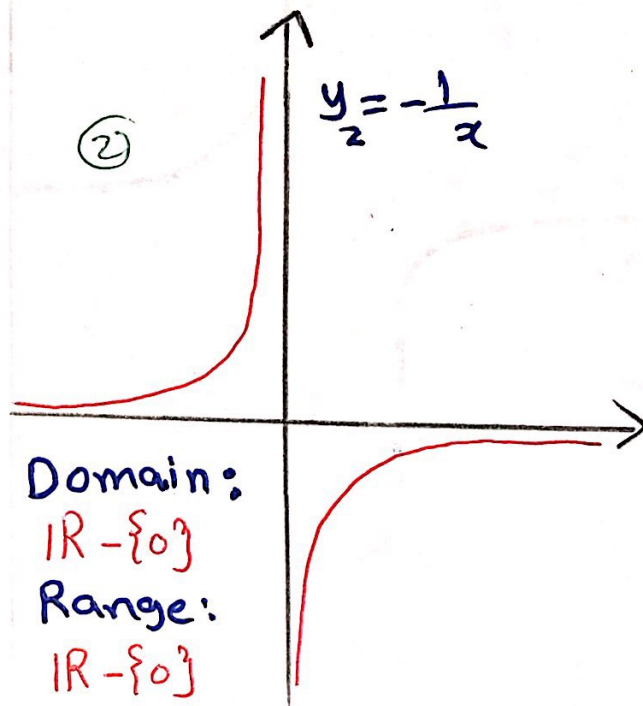 ②
y₂ = -1/x
Domain:
IR -{0}
Range:
IR -{0}